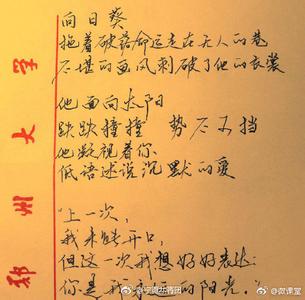 向日葵
拖着破落命运走在无人的巷
不堪的画风刺破了他的衣裳
他面向太阳
跌跌撞撞 势不可挡
他凝视着你
低语述说沉默的爱
"上一次,
我未能开口,
但这一次我想好好表达:
你是我 的阳光."
郑州大学
@微课堂